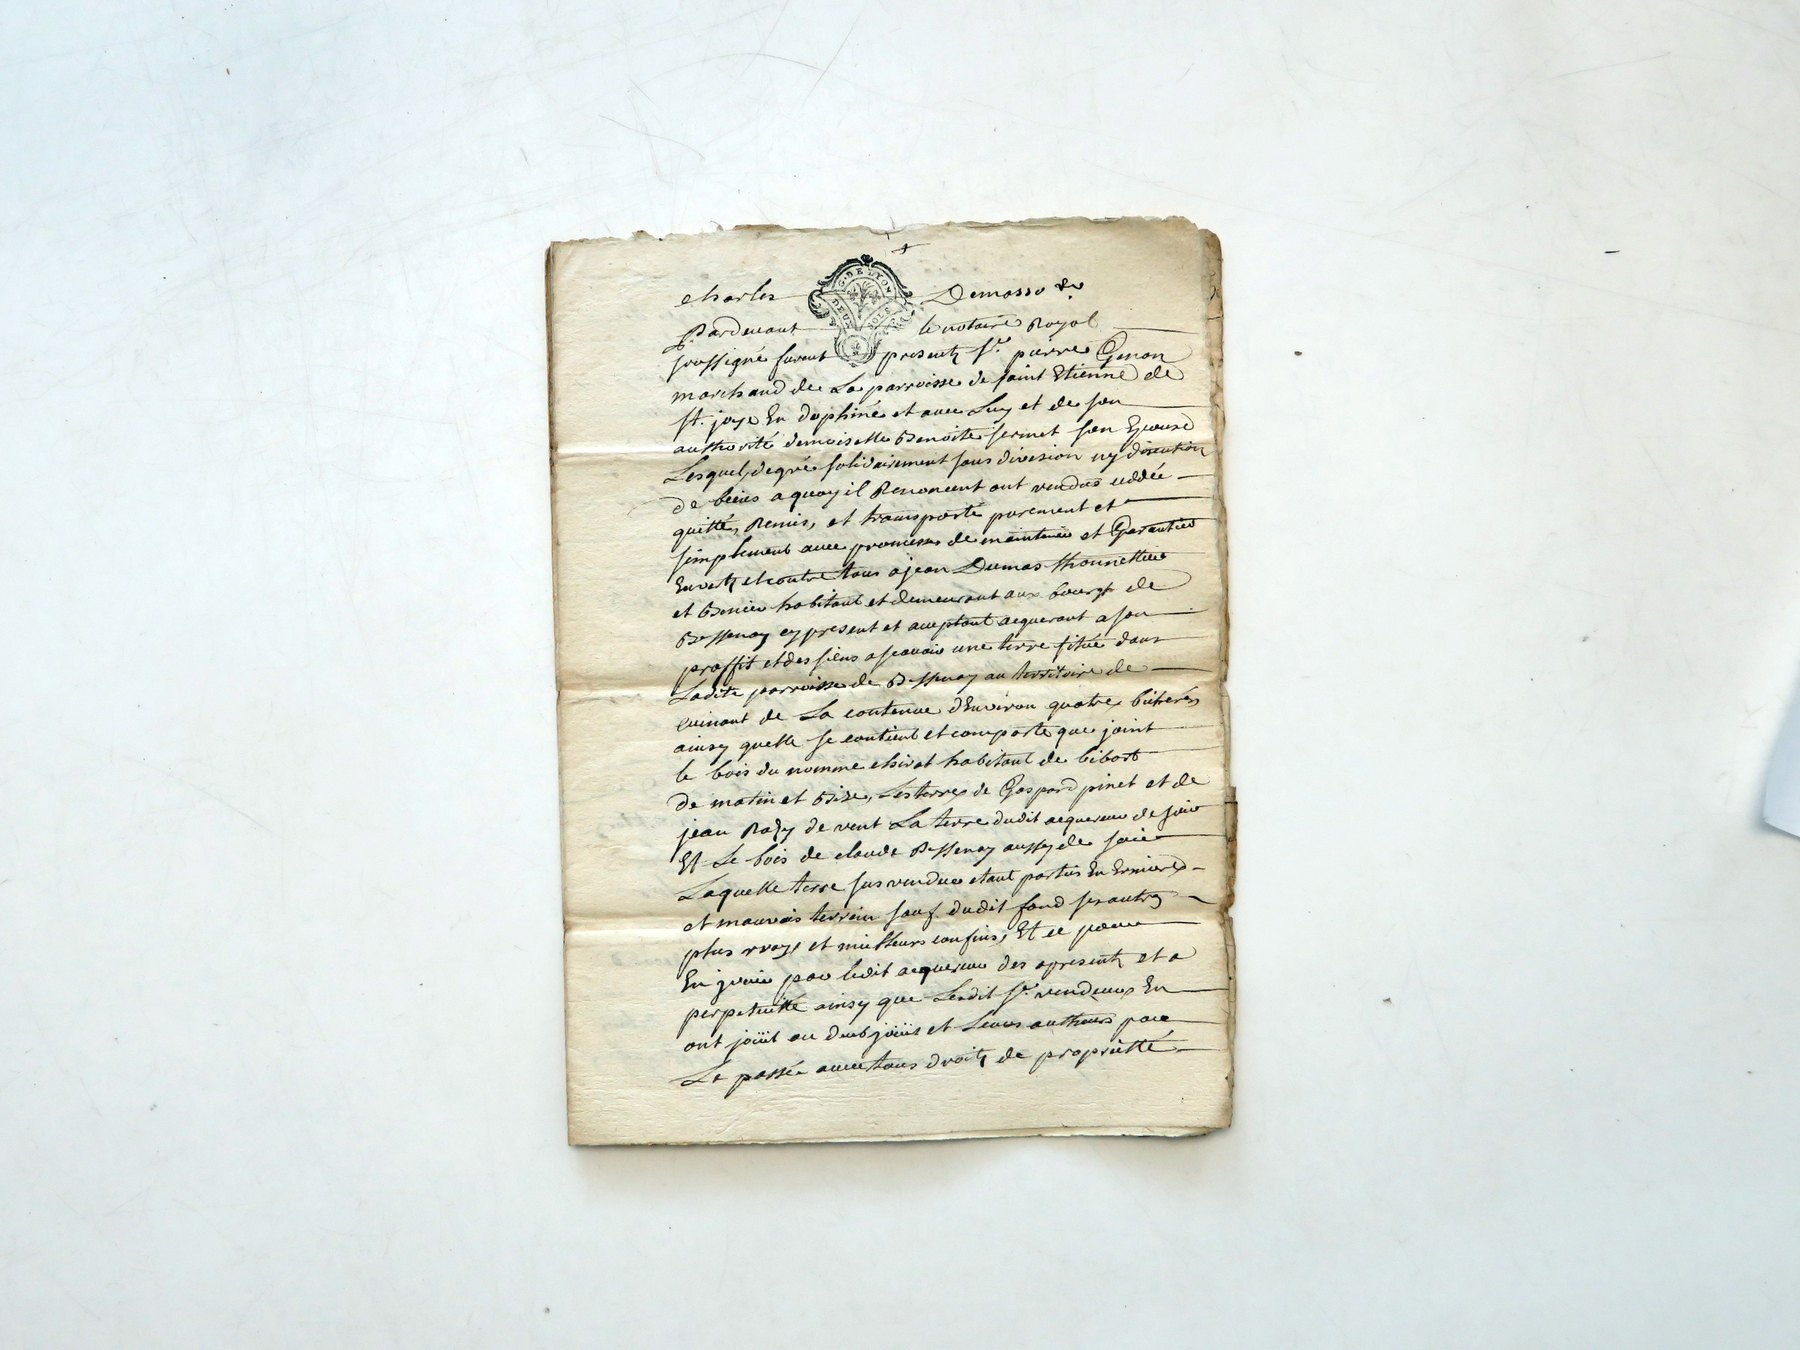 charles Demasso
G. DE LYON
DEUX SOLS
Pardevant le notaire Royal
soussigné furent presentz Sr. pierre Genon
marchand de La parroisse de saint Etienne de
st. joys En dophiné et avec Luy et de son
authorité demoiselle Benoite fermet son Epouse
Lesquels de gré solidairement sans division ny discution
de biens a quoy il Renoncent ont vendus ceddée
quitté, Remis, et transporté purement et
simplement avec promesses de maintenir et Garantir
Envertz et contre tous a jean Dumas thonnellier
et Benier habitant et demeurant aux bourgt de
Bessenay cy present et acceptant acquerant a son
proffit et des siens a scavoir une terre sitüé dans
Ladite parroisse de Bessenay au territoire de
cuinant de La contenue d'Environ quatre bicherés
ainsy quelle se contient et comporte que joint
le bois du nomme chirat habitant de bibost
de matin et Bize, Les terres de Gaspard pinet et de
jean Razy de vent La terre dudit acquereur de soir
Et Le bois de claude Bessenay aussy de soir
Laquelle terre sus vendue etant parties En Ermieres
et mauvais terrein sauf dudit fond ses autres
plus vrays et meilleurs confins, Et ce pour
En jouir par ledit acquereur des apresentz et a
perpetuitté ainsy que Lesdit Sr. vendeurs En
ont joüit ou deub joüir et Leurs autheurs par
Le passé avec tous droitz de propriétté